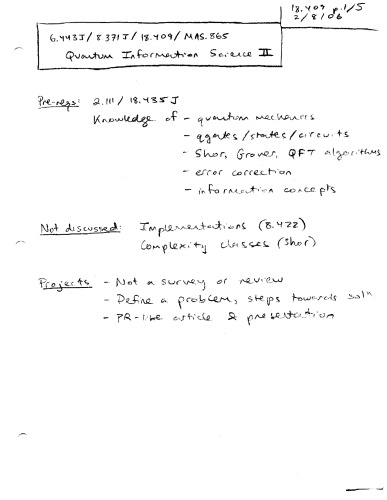 18.409 p.1/5
2/8/06
6.443J/8.371J/18.409/MAS.865
Quantum Information Science II
Pre-reqs: 2.111/18.435J
Knowledge of - quantum mechanics
- qgates/states/circuits
- Shor, Grover, QFT algorithms
- error correction
- information concepts
Not discussed: Implementations (8.422)
Complexity classes (Shor)
Projects - Not a survey or review
- Define a problem, steps towards solⁿ
- PR-like article & presentation